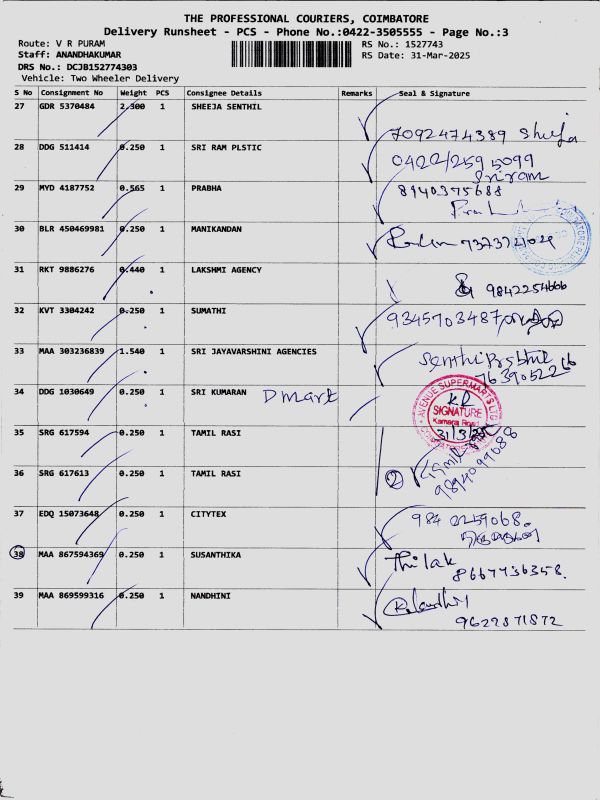 THE PROFESSIONAL COURIERS, COIMBATORE
Delivery Runsheet - PCS - Phone No.:0422-3505555 - Page No.:3
Route: V R PURAM
RS No.: 1527743
Staff: ANANDHAKUMAR
RS Date: 31-Mar-2025
DRS No.: DCJB152774303
Vehicle: Two Wheeler Delivery
S No Consignment No Weight PCS Consignee Details Remarks Seal & Signature
27 GDR 5370484 2.300 1 SHEEJA SENTHIL
7092474389 Sheeja
28 DDG 511414 0.250 1 SRI RAM PLSTIC
0422/259 5099
Sriram
29 MYD 4187752 0.565 1 PRABHA
8940375688
30 BLR 450469981 0.250 1 MANIKANDAN
31 RKT 9886276 0.440 1 LAKSHMI AGENCY
32 KVT 3304242 0.250 1 SUMATHI
9345703487
33 MAA 303236839 1.540 1 SRI JAYAVARSHINI AGENCIES
34 DDG 1030649 0.250 1 SRI KUMARAN D mart
AVENUE SUPERMARTS LTD
KR
SIGNATURE
Kamaraj Road
35 SRG 617594 0.250 1 TAMIL RASI
2
9894099088
36 SRG 617613 0.250 1 TAMIL RASI
37 EDQ 15073648 0.250 1 CITYTEX
984 2259068.
38 MAA 867594369 0.250 1 SUSANTHIKA
Thilak
8667736358.
39 MAA 869599316 0.250 1 NANDHINI
9629871872